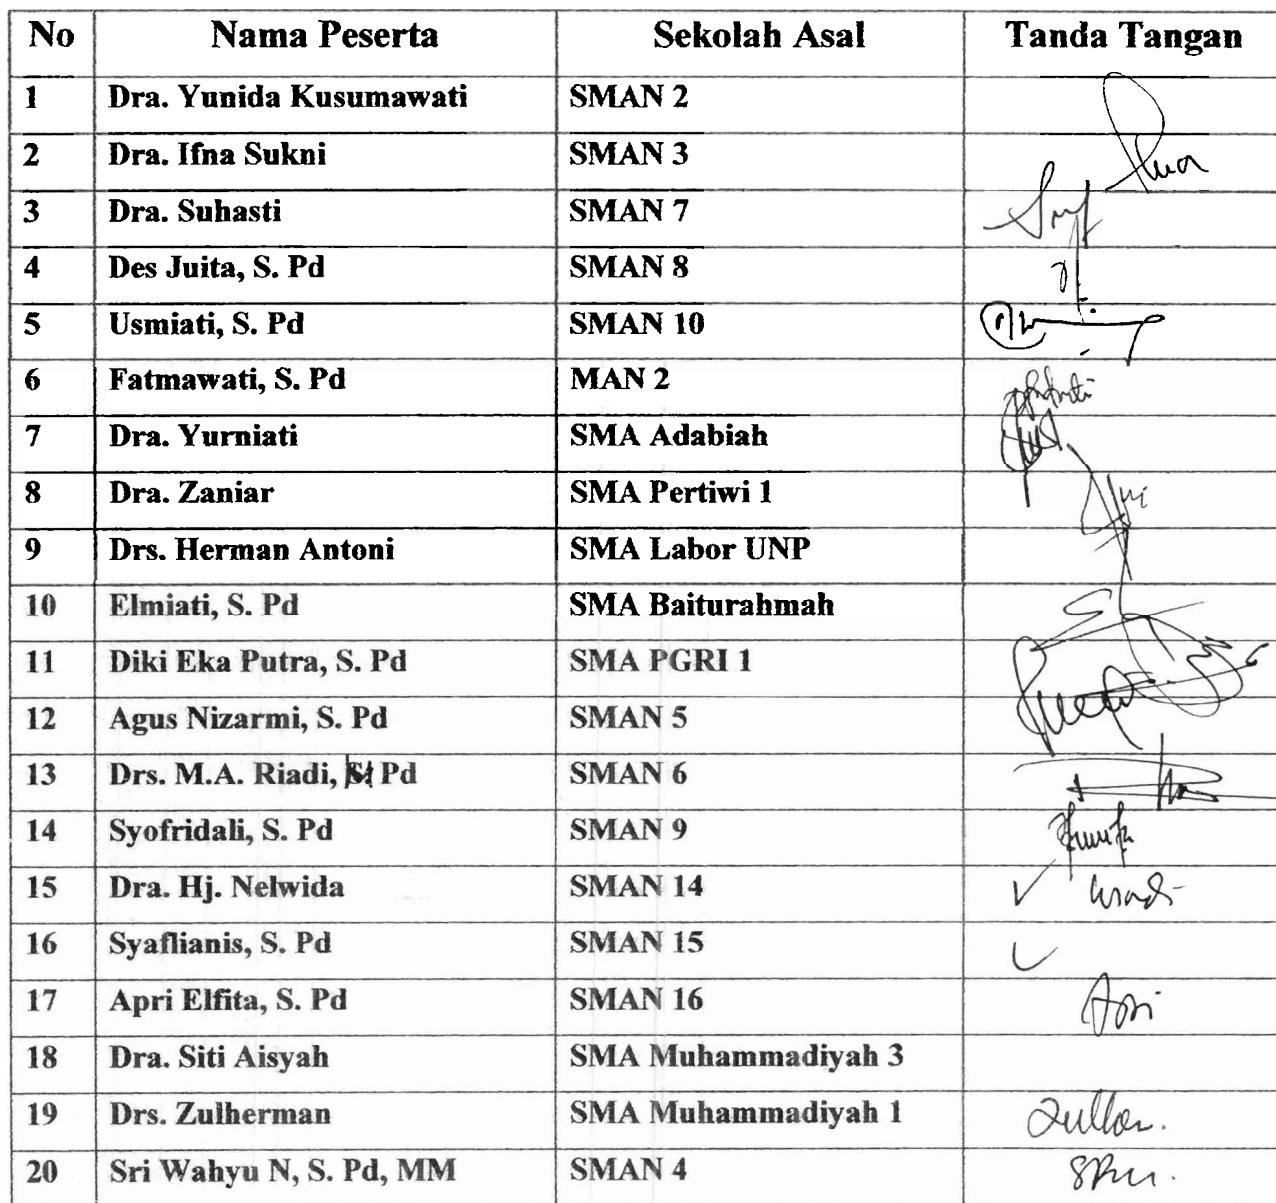 No Nama Peserta Sekolah Asal Tanda Tangan
1 Dra. Yunida Kusumawati SMAN 2
2 Dra. Ifna Sukni SMAN 3
3 Dra. Suhasti SMAN 7
4 Des Juita, S. Pd SMAN 8
5 Usmiati, S. Pd SMAN 10
6 Fatmawati, S. Pd MAN 2
7 Dra. Yurniati SMA Adabiah
8 Dra. Zaniar SMA Pertiwi 1
9 Drs. Herman Antoni SMA Labor UNP
10 Elmiati, S. Pd SMA Baiturahmah
11 Diki Eka Putra, S. Pd SMA PGRI 1
12 Agus Nizarmi, S. Pd SMAN 5
13 Drs. M.A. Riadi, Pd SMAN 6
14 Syofridali, S. Pd SMAN 9
15 Dra. Hj. Nelwida SMAN 14
16 Syaflianis, S. Pd SMAN 15
17 Apri Elfita, S. Pd SMAN 16
18 Dra. Siti Aisyah SMA Muhammadiyah 3
19 Drs. Zulherman SMA Muhammadiyah 1
20 Sri Wahyu N, S. Pd, MM SMAN 4